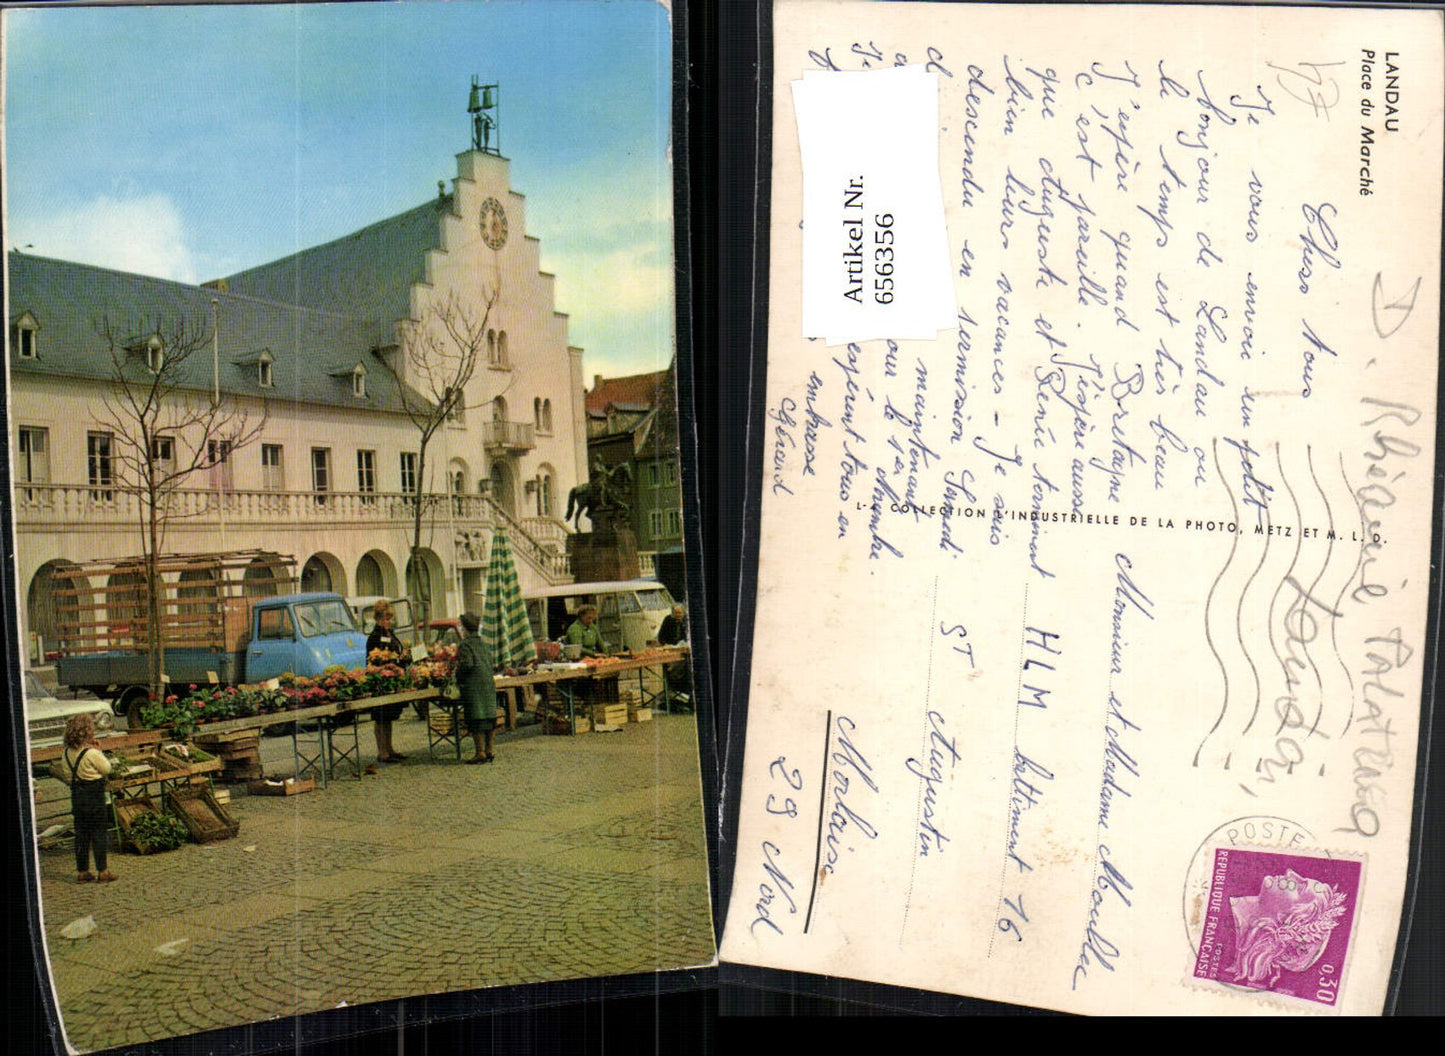 LANDAU
Place du Marché
Chers tous
Je vous envoie un petit
bonjour de Landau ou
le temps est très beau
J'espère quand Bretagne
c'est pareille. J'espère aussi
que Auguste et Renée terminent
bien leurs vacances - Je suis
descendu en permission Samedi
maintenant
ou le 1er
embrasse
tous en
Gérard
L-4 COLLECTION L'INDUSTRIELLE DE LA PHOTO, METZ ET M. L. O.
Monsieur et Madame
HLM battiment 16
ST Augustin
Morlaise
29 Nord
D. Rhéanie Palatinag
Landau
POSTE
REPUBLIQUE FRANÇAISE
POSTES
0,30
Artikel Nr.
656356